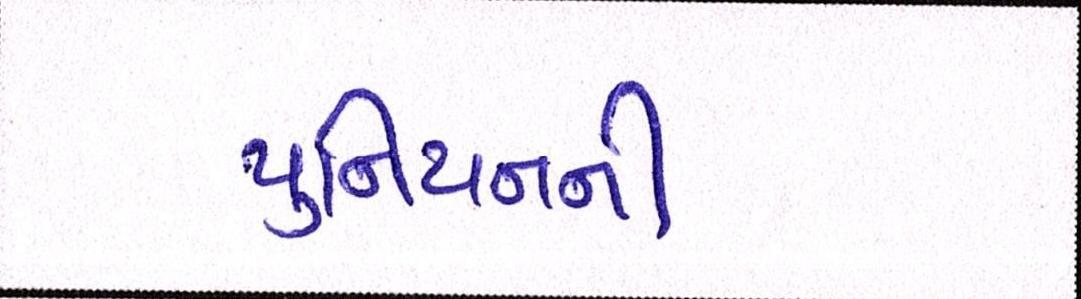 યુનિયનની